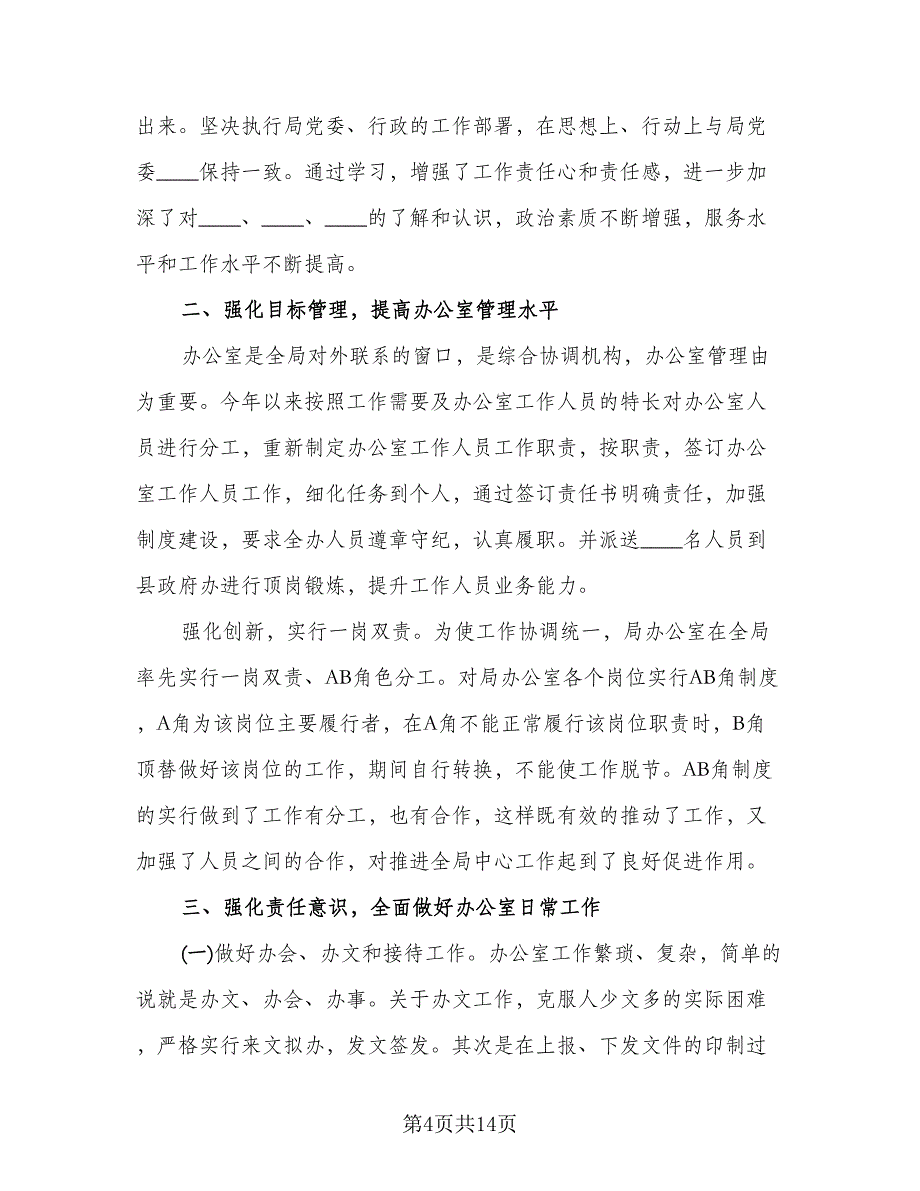 出来。坚决执行局党委、行政的工作部署，在思想上、行动上与局党
委____保持一致。通过学习，增强了工作责任心和责任感，进一步加
深了对____、____、____的了解和认识，政治素质不断增强，服务水
平和工作水平不断提高。
二、强化目标管理，提高办公室管理水平
办公室是全局对外联系的窗口，是综合协调机构，办公室管理由
为重要。今年以来按照工作需要及办公室工作人员的特长对办公室人
员进行分工，重新制定办公室工作人员工作职责，按职责，签订办公
室工作人员工作，细化任务到个人，通过签订责任书明确责任，加强
制度建设，要求全办人员遵章守纪，认真履职。并派送____名人员到
县政府办进行顶岗锻炼，提升工作人员业务能力。
强化创新，实行一岗双责。为使工作协调统一，局办公室在全局
率先实行一岗双责、AB角色分工。对局办公室各个岗位实行AB角制度
，A角为该岗位主要履行者，在A角不能正常履行该岗位职责时，B角
顶替做好该岗位的工作，期间自行转换，不能使工作脱节。AB角制度
的实行做到了工作有分工，也有合作，这样既有效的推动了工作，又
加强了人员之间的合作，对推进全局中心工作起到了良好促进作用。
三、强化责任意识，全面做好办公室日常工作
(一)做好办会、办文和接待工作。办公室工作繁琐、复杂，简单的
说就是办文、办会、办事。关于办文工作，克服人少文多的实际困难
，严格实行来文拟办，发文签发。其次是在上报、下发文件的印制过
第4页共14页